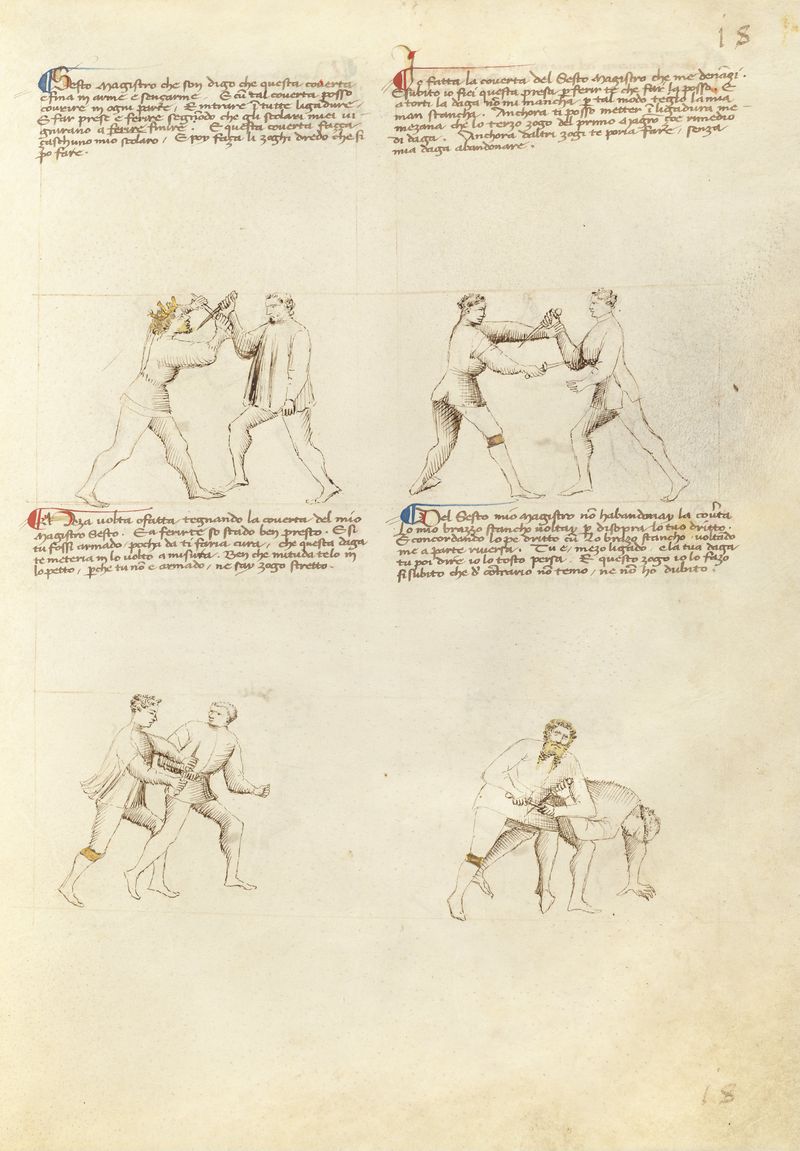 18
Sesto Magistro che son digo che questa coverta
e fina in arme e sença arme. E cũ tal coverta posso
covrire in ogni parte, E intrare ĩ tute ligadure,
E far prese e ferire segondo che gli scolari miei vi-
gnirano a ferire finire. E questa coverta façça
çaschuno mio scolaro, E poy faça li zoghi dredo che si
pò fare.
Io fatta la coverta del Sesto Magistro che me denãçi.
E subito io fiei questa presa per ferirte che far la posso. E
a torti la daga nõ mi mancha, per tal modo tegno la mia
man stancha. Anchora ti posso metter ĩ ligadura me-
zana che lo terzo zogo del primo Magro çoè rimedio
di daga. Anchora d'altri zogi te poria fare, senza
mia daga abandonare.
Meza volta ò fatta tegnando la coverta del mio
Magistro Sesto. E a ferirte so stado ben presto. E si
tu fossi armado pocha da ti faria cura, che questa daga
te meteria in lo volto a misura. Ben che mituda te lò in
lo petto, perche tu nõ e armado, ne say zogo stretto.
Del Sesto mio magistro nõ habandonay la cov̾ta
Lo mio brazzo stancho voltay per disopra lo tuo dritto.
E concordando lo pe dritto cũ lo brazo stancho, voltãdo
me a parte riversa. Tu e mezo ligado, e la tua daga
tu poi dire io lo tosto persa. E questo zogo io lo fazo
si subito che del contrario nõ temo, ne nõ hò dubito.
18